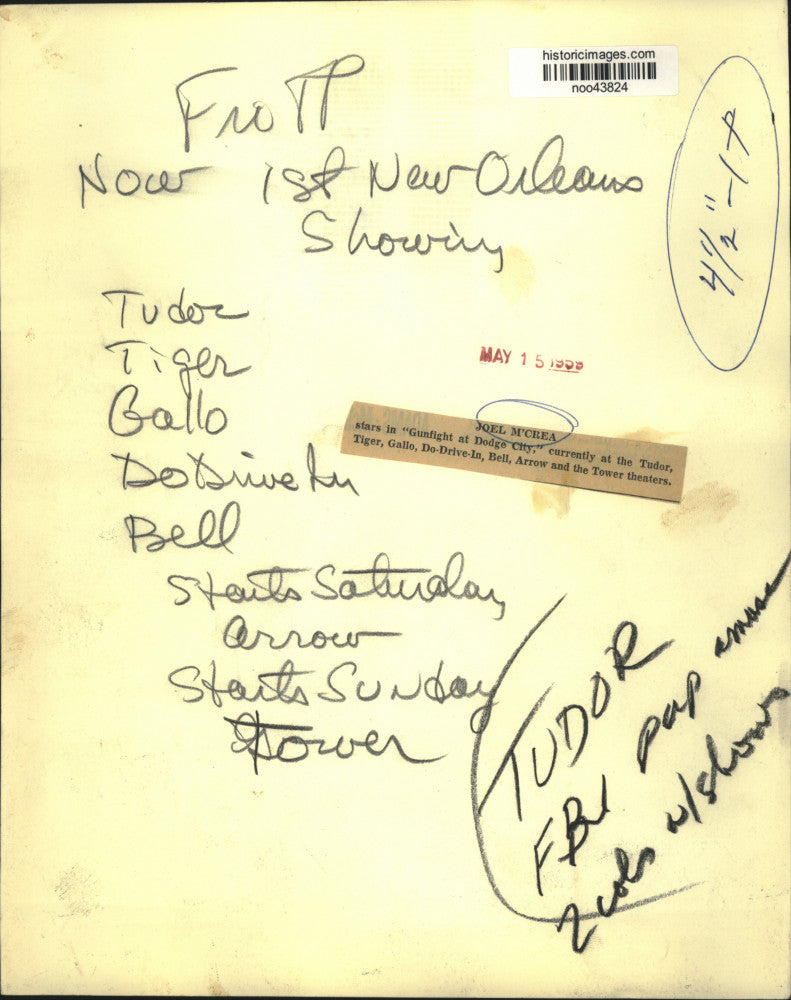 historicimages.com
noo43824
4½"-1
Now 1st New Orleans
Showing
Tudor
Tiger
Gallo
Do Drive In
Bell
Starts Saturday
Arrow
Starts Sunday
Tower
MAY 15 1959
JOEL M'CREA
stars in "Gunfight at Dodge City," currently at the Tudor,
Tiger, Gallo, Do-Drive-In, Bell, Arrow and the Tower theaters.
TUDOR
pap amuse
2 cols w/shows